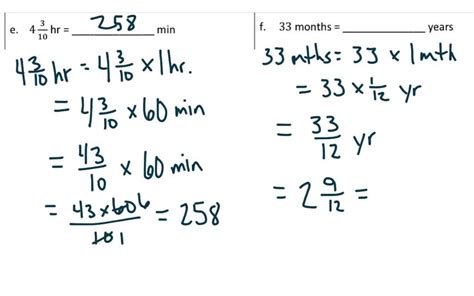 e. 4 3/10 hr = 258 min
4 3/10 hr = 4 3/10 × 1 hr.
= 4 3/10 × 60 min
= 43/10 × 60 min
= 43 × 60 6 / 10 1 = 258
f. 33 months = ____________ years
33 mths = 33 × 1 mth
= 33 × 1/12 yr
= 33/12 yr
= 2 9/12 =